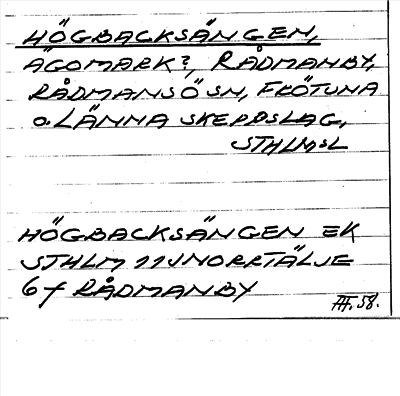 HÖGBACKSÄNGEN,
ÄGOMARK?, RÅDMANBY,
RÅDMANSÖ SN, FRÖTUNA
o. LÄNNA SKEPPSLAG,
STHLMSL
HÖGBACKSÄNGEN EK
STHLM 11J NORRTÄLJE
6f RÅDMANBY
58.